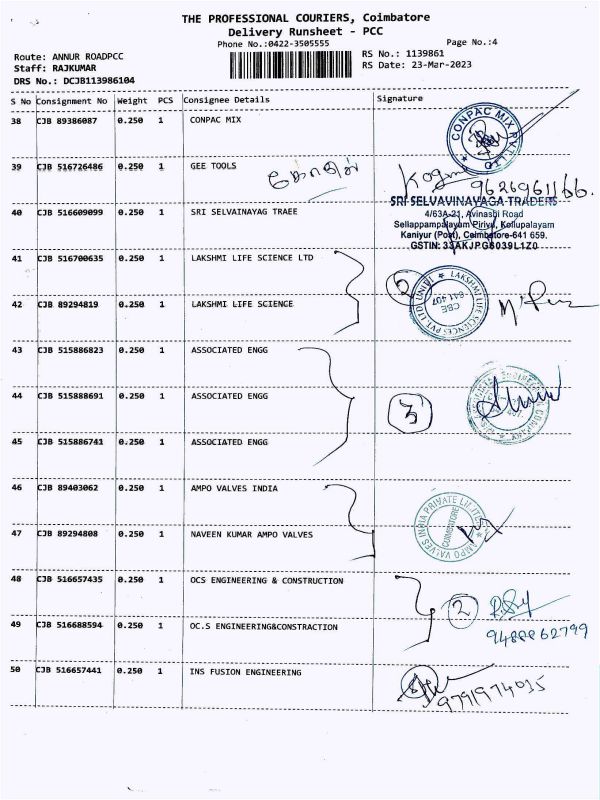 THE PROFESSIONAL COURIERS, Coimbatore
Delivery Runsheet - PCC
Phone No.:0422-3505555
Page No.:4
Route: ANNUR ROADPCC
RS No.: 1139861
Staff: RAJKUMAR
RS Date: 23-Mar-2023
DRS No.: DCJB113986104
S No Consignment No Weight PCS Consignee Details Signature
38 CJB 89386087 0.250 1 CONPAC MIX
CONPAC MIX PVT. LTD
39 CJB 516726486 0.250 1 GEE TOOLS
9626961166.
40 CJB 516609099 0.250 1 SRI SELVAINAYAG TRAEE
SRI SELVAVINAYAGA TRADERS
4/63A-21, Avinashi Road
Sellappampalayam Pirivu, Kollupalayam
Kaniyur (Post), Coimbatore-641 659.
GSTIN: 33AKJPG8039L1Z0
41 CJB 516700635 0.250 1 LAKSHMI LIFE SCIENCE LTD
42 CJB 89294819 0.250 1 LAKSHMI LIFE SCIENCE
LAKSHMI LIFE SCIENCES PVT. LTD UNIT
CBE
641 407
43 CJB 515886823 0.250 1 ASSOCIATED ENGG
44 CJB 515888691 0.250 1 ASSOCIATED ENGG
3
45 CJB 515886741 0.250 1 ASSOCIATED ENGG
46 CJB 89403062 0.250 1 AMPO VALVES INDIA
47 CJB 89294808 0.250 1 NAVEEN KUMAR AMPO VALVES
AMPO VALVES INDIA PRIVATE LIMITED
COIMBATORE
48 CJB 516657435 0.250 1 OCS ENGINEERING & CONSTRUCTION
2
49 CJB 516688594 0.250 1 OC.S ENGINEERING&CONSTRACTION
9488862799
50 CJB 516657441 0.250 1 INS FUSION ENGINEERING
9791974035